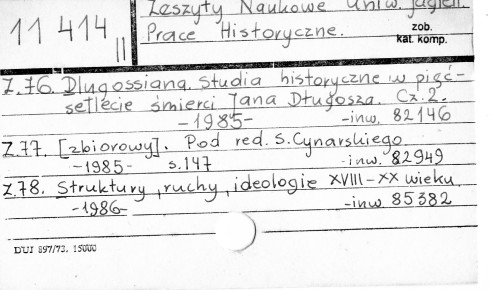 Zeszyty Naukowe Uniw. Jagiell.
11 414 II
Prace Historyczne.
zob. kat. komp.
Z.76. Dlugossiana. Studia historyczne w pięć-
setlecie śmierci Jana Długosza. Cz. 2.
-1985- -inw. 82146
Z.77. [zbiorowy]. Pod red. S. Cynarskiego.
-1985- s.147 -inw. 82949
Z.78. Struktury, ruchy, ideologie XVIII-XX wieku.
-1986- -inw. 85382
DUJ 897/73. 15000